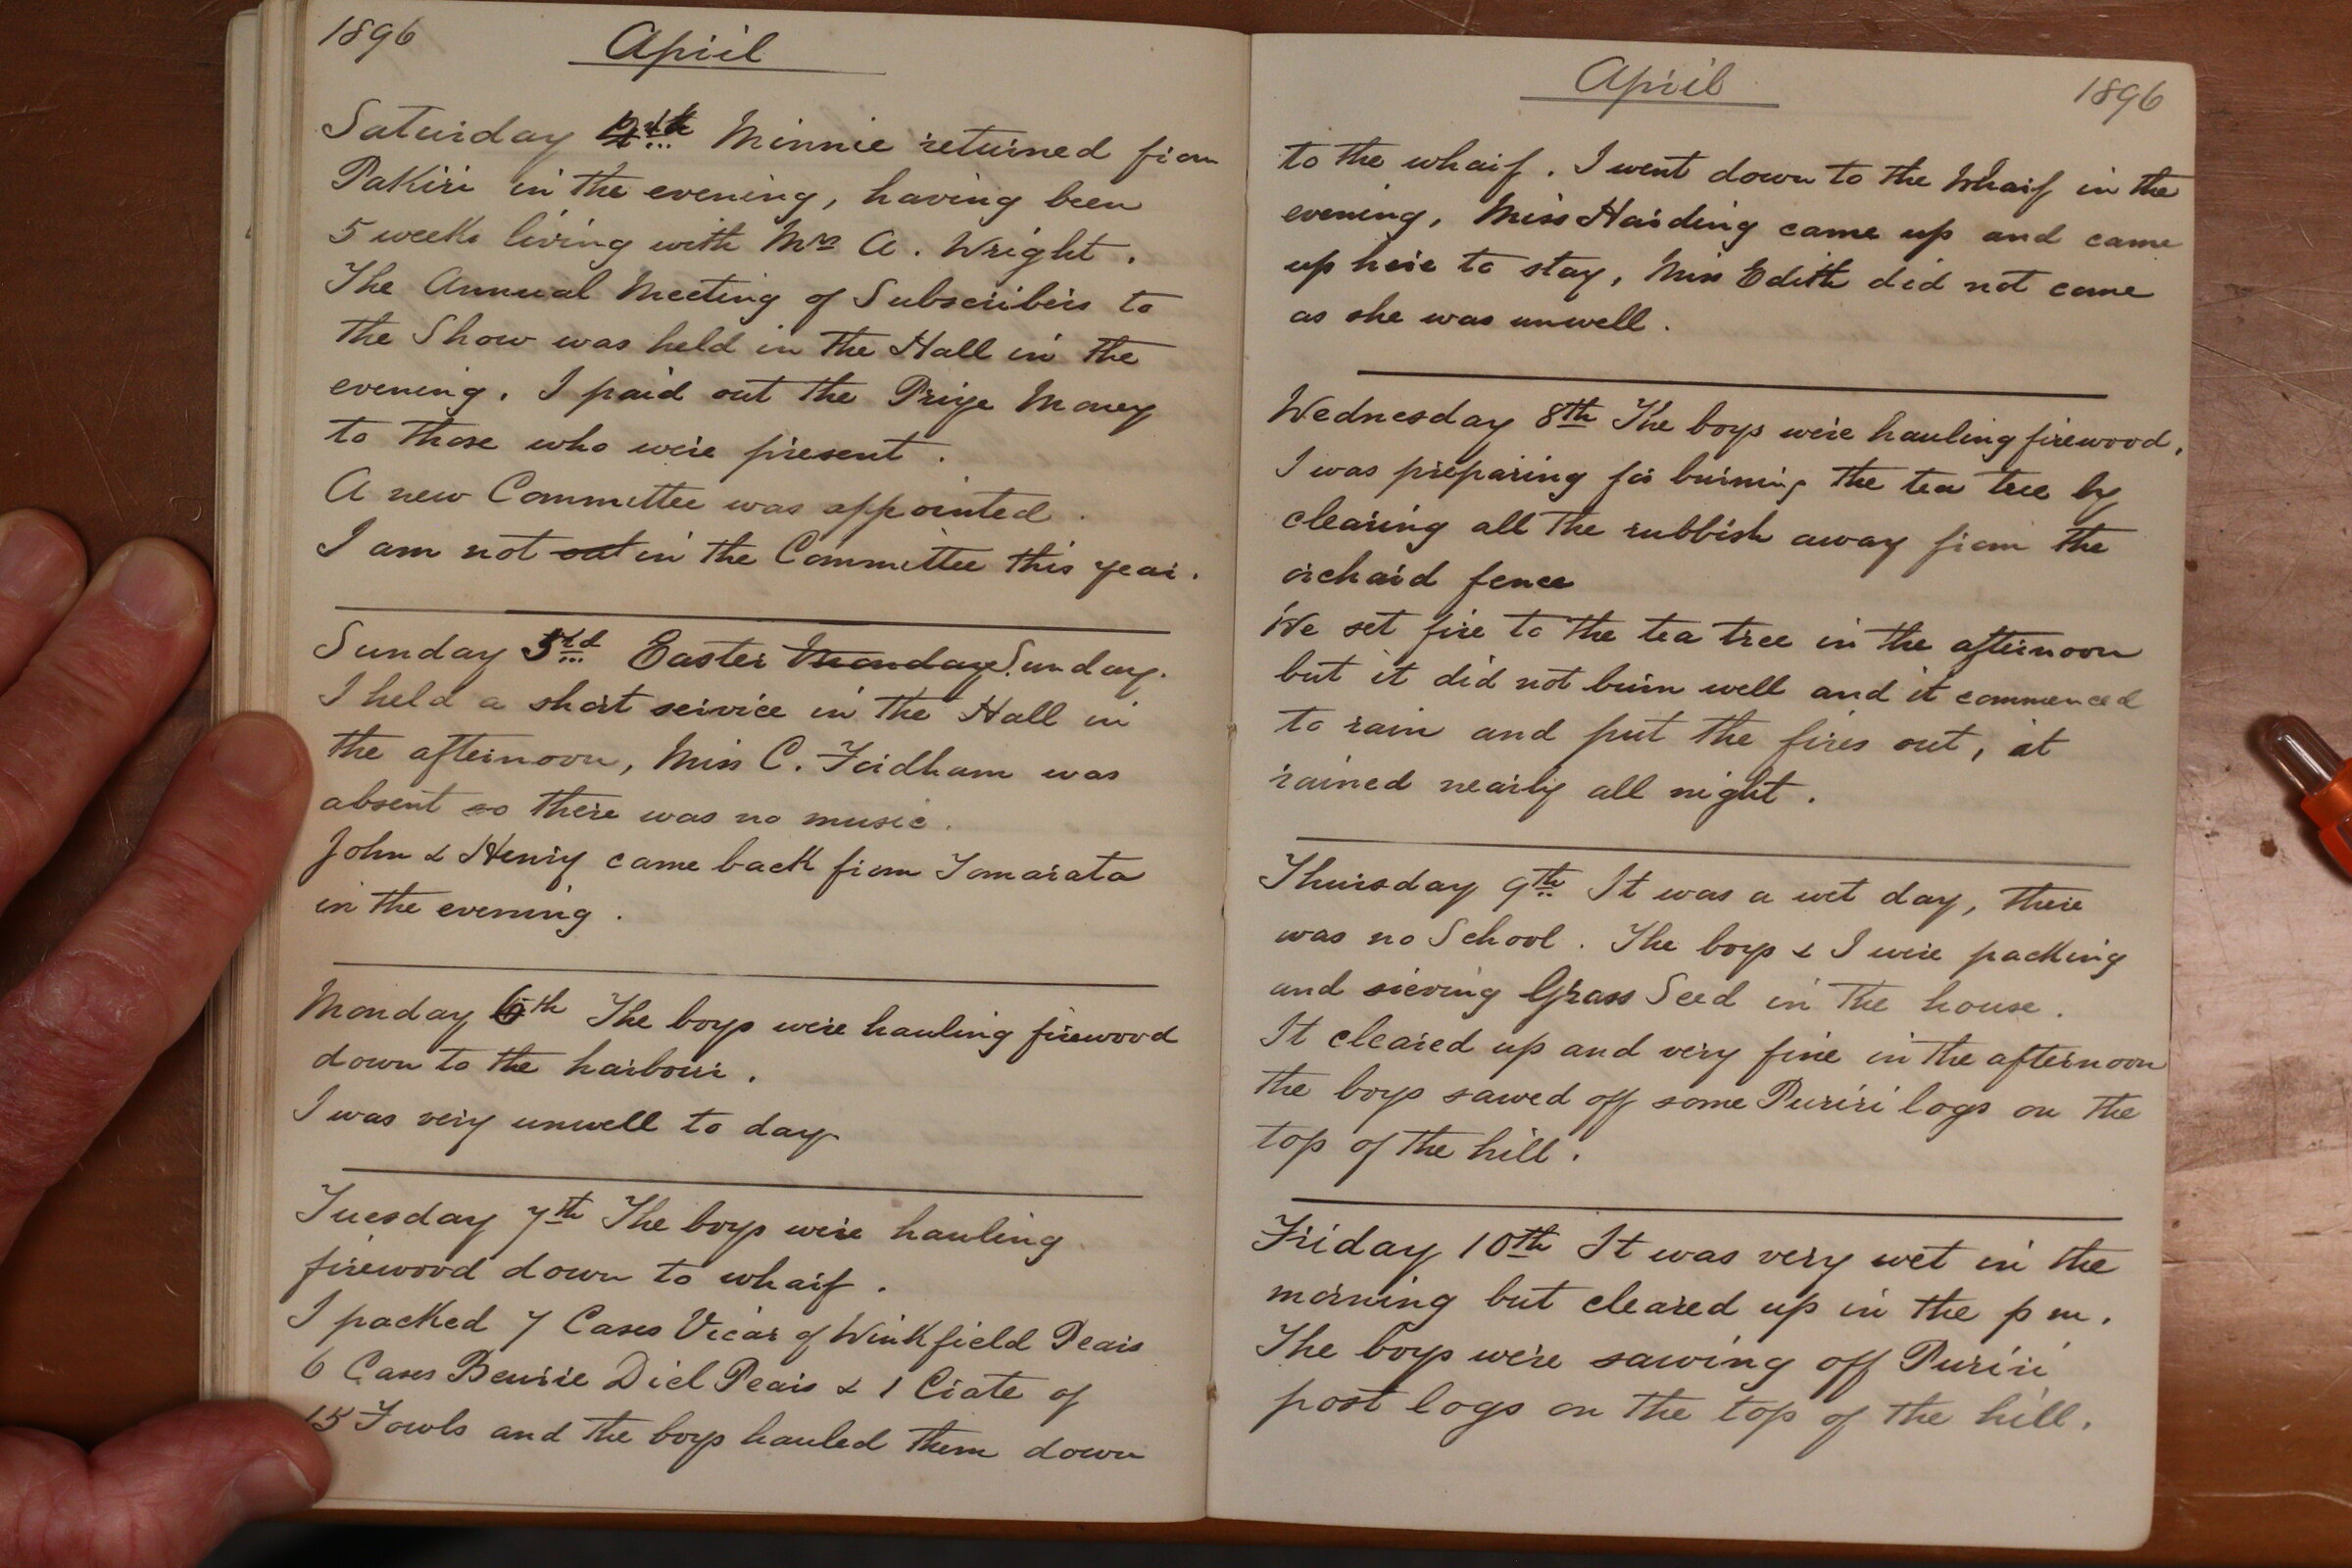 1896
April
Saturday Minnie returned from
Pakiri in the evening, having been
5 weeks living with Mrs A. Wright.
The Annual Meeting of Subscribers to
the Show was held in the Hall in the
evening. I paid out the Prize Money
to those who were present.
A new Committee was appointed.
I am not out in the Committee this year.
Sunday Easter Monday Sunday.
I held a short service in the Hall in
the afternoon, Miss C. Fordham was
absent so there was no music.
John & Henry came back from Tomarata
in the evening.
Monday 6th The boys were hauling firewood
down to the harbour.
I was very unwell to day
Tuesday 7th The boys were hauling
firewood down to wharf.
I packed 7 Cases Vicar of Winkfield Pears
6 Cases Beurrie Diel Pears & 1 Crate of
15 Fowls and the boys hauled them down
April
1896
to the wharf. I went down to the Wharf in the
evening, Miss Harding came up and came
up here to stay, Miss Edith did not come
as she was unwell.
Wednesday 8th The boys were hauling firewood,
I was preparing for burning the tea tree by
clearing all the rubbish away from the
orchard fence
We set fire to the tea tree in the afternoon
but it did not burn well and it commenced
to rain and put the fires out, it
rained nearly all night.
Thursday 9th It was a wet day, there
was no School. The boys & I were packing
and sieving Grass Seed in the house.
It cleared up and very fine in the afternoon
the boys sawed off some Puriri logs on the
top of the hill.
Friday 10th It was very wet in the
morning but cleared up in the p m.
The boys were sawing off Puriri
post logs on the top of the hill.